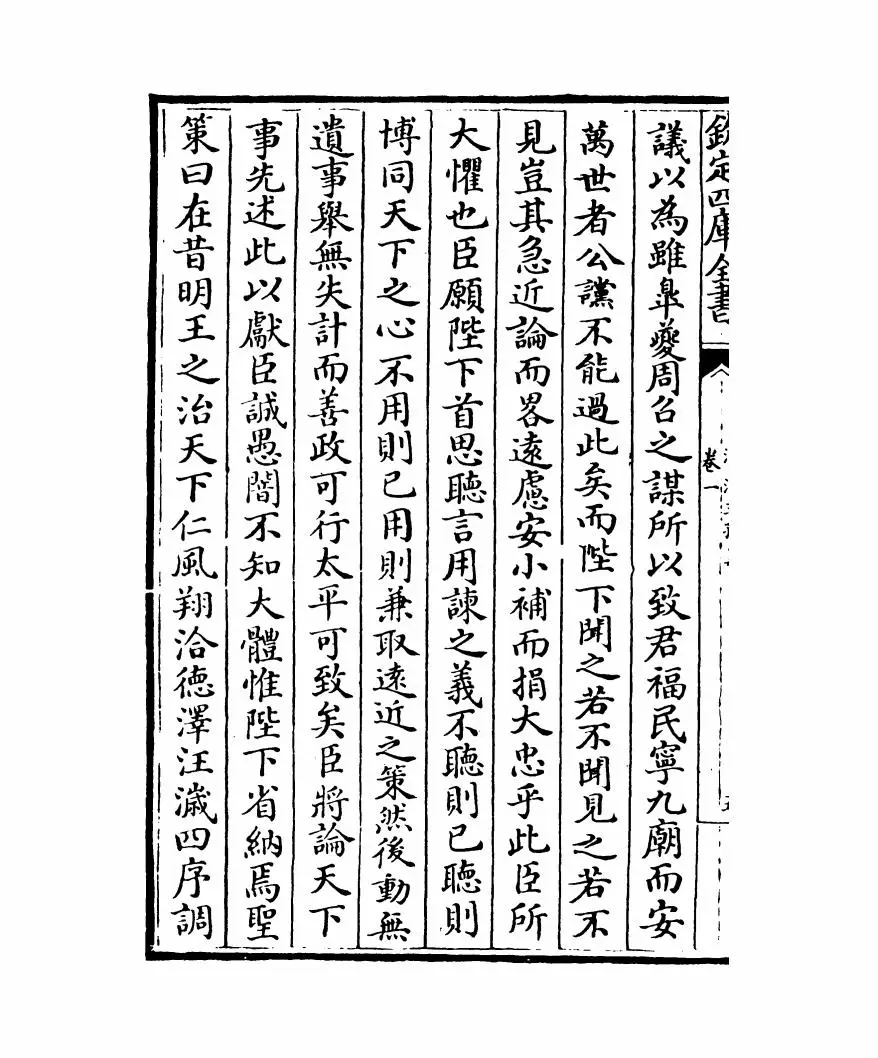 欽定四庫全書
卷一
議以為雖臯夔周召之謀所以致君福民寧九廟而安
萬世者公讜不能過此矣而陛下聞之若不聞見之若不
見豈其急近論而畧遠慮安小補而捐大忠乎此臣所
大懼也臣願陛下首思聽言用諫之義不聽則已聽則
博同天下之心不用則已用則兼取遠近之策然後動無
遺事舉無失計而善政可行太平可致矣臣將論天下
事先述此以獻臣誠愚闇不知大體惟陛下省納焉聖
策曰在昔明王之治天下仁風翔洽徳澤汪濊四序調